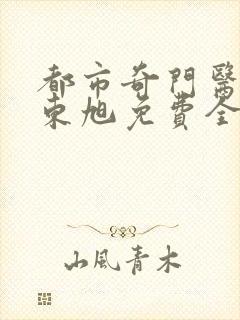 都市奇門醫
東旭免費全
山風青木